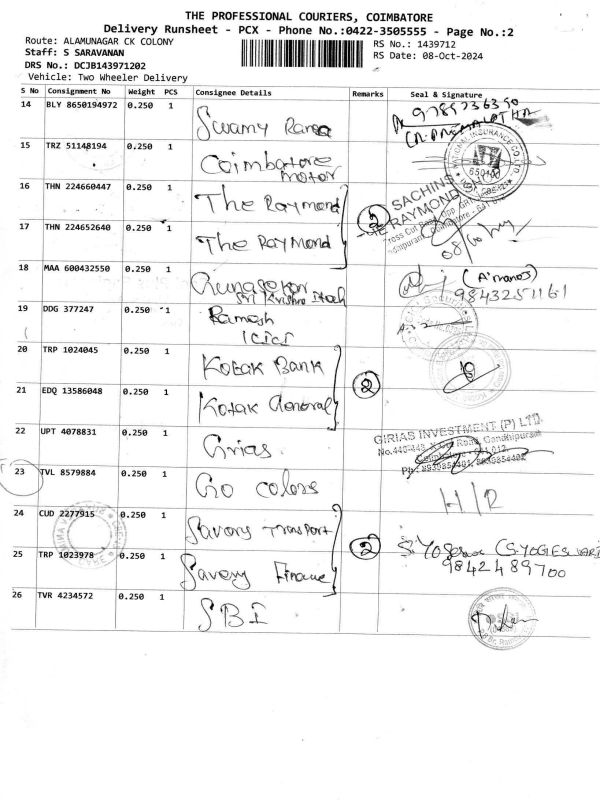 THE PROFESSIONAL COURIERS, COIMBATORE
Delivery Runsheet - PCX - Phone No.:0422-3505555 - Page No.:2
Route: ALAMUNAGAR CK COLONY
RS No.: 1439712
Staff: S SARAVANAN
RS Date: 08-Oct-2024
DRS No.: DCJB143971202
Vehicle: Two Wheeler Delivery
S No Consignment No Weight PCS Consignee Details Remarks Seal & Signature
14 BLY 8650194972 0.250 1 Swamy
15 TRZ 51148194 0.250 1 Coimbatore
motor
16 THN 224660447 0.250 1 The Raymond
2 SACHINS
RAYMOND
17 THN 224652640 0.250 1 The Raymond
08
18 MAA 600432550 0.250 1 Gunasekar
Sri Krishna (A'manoj)
9843251161
19 DDG 377247 0.250 1 Ramesh
ICICI
20 TRP 1024045 0.250 1 Kotak Bank
2
21 EDQ 13586048 0.250 1 Kotak General
22 UPT 4078831 0.250 1 Girias
GIRIAS INVESTMENT (P) LTD.
23 TVL 8579884 0.250 1 Go Colors
H/R
24 CUD 2277915 0.250 1 Savory Transport
2 (S.YOGIESWARI
25 TRP 1023978 0.250 1 Savory Finance
9842489700
26 TVR 4234572 0.250 1 SBI